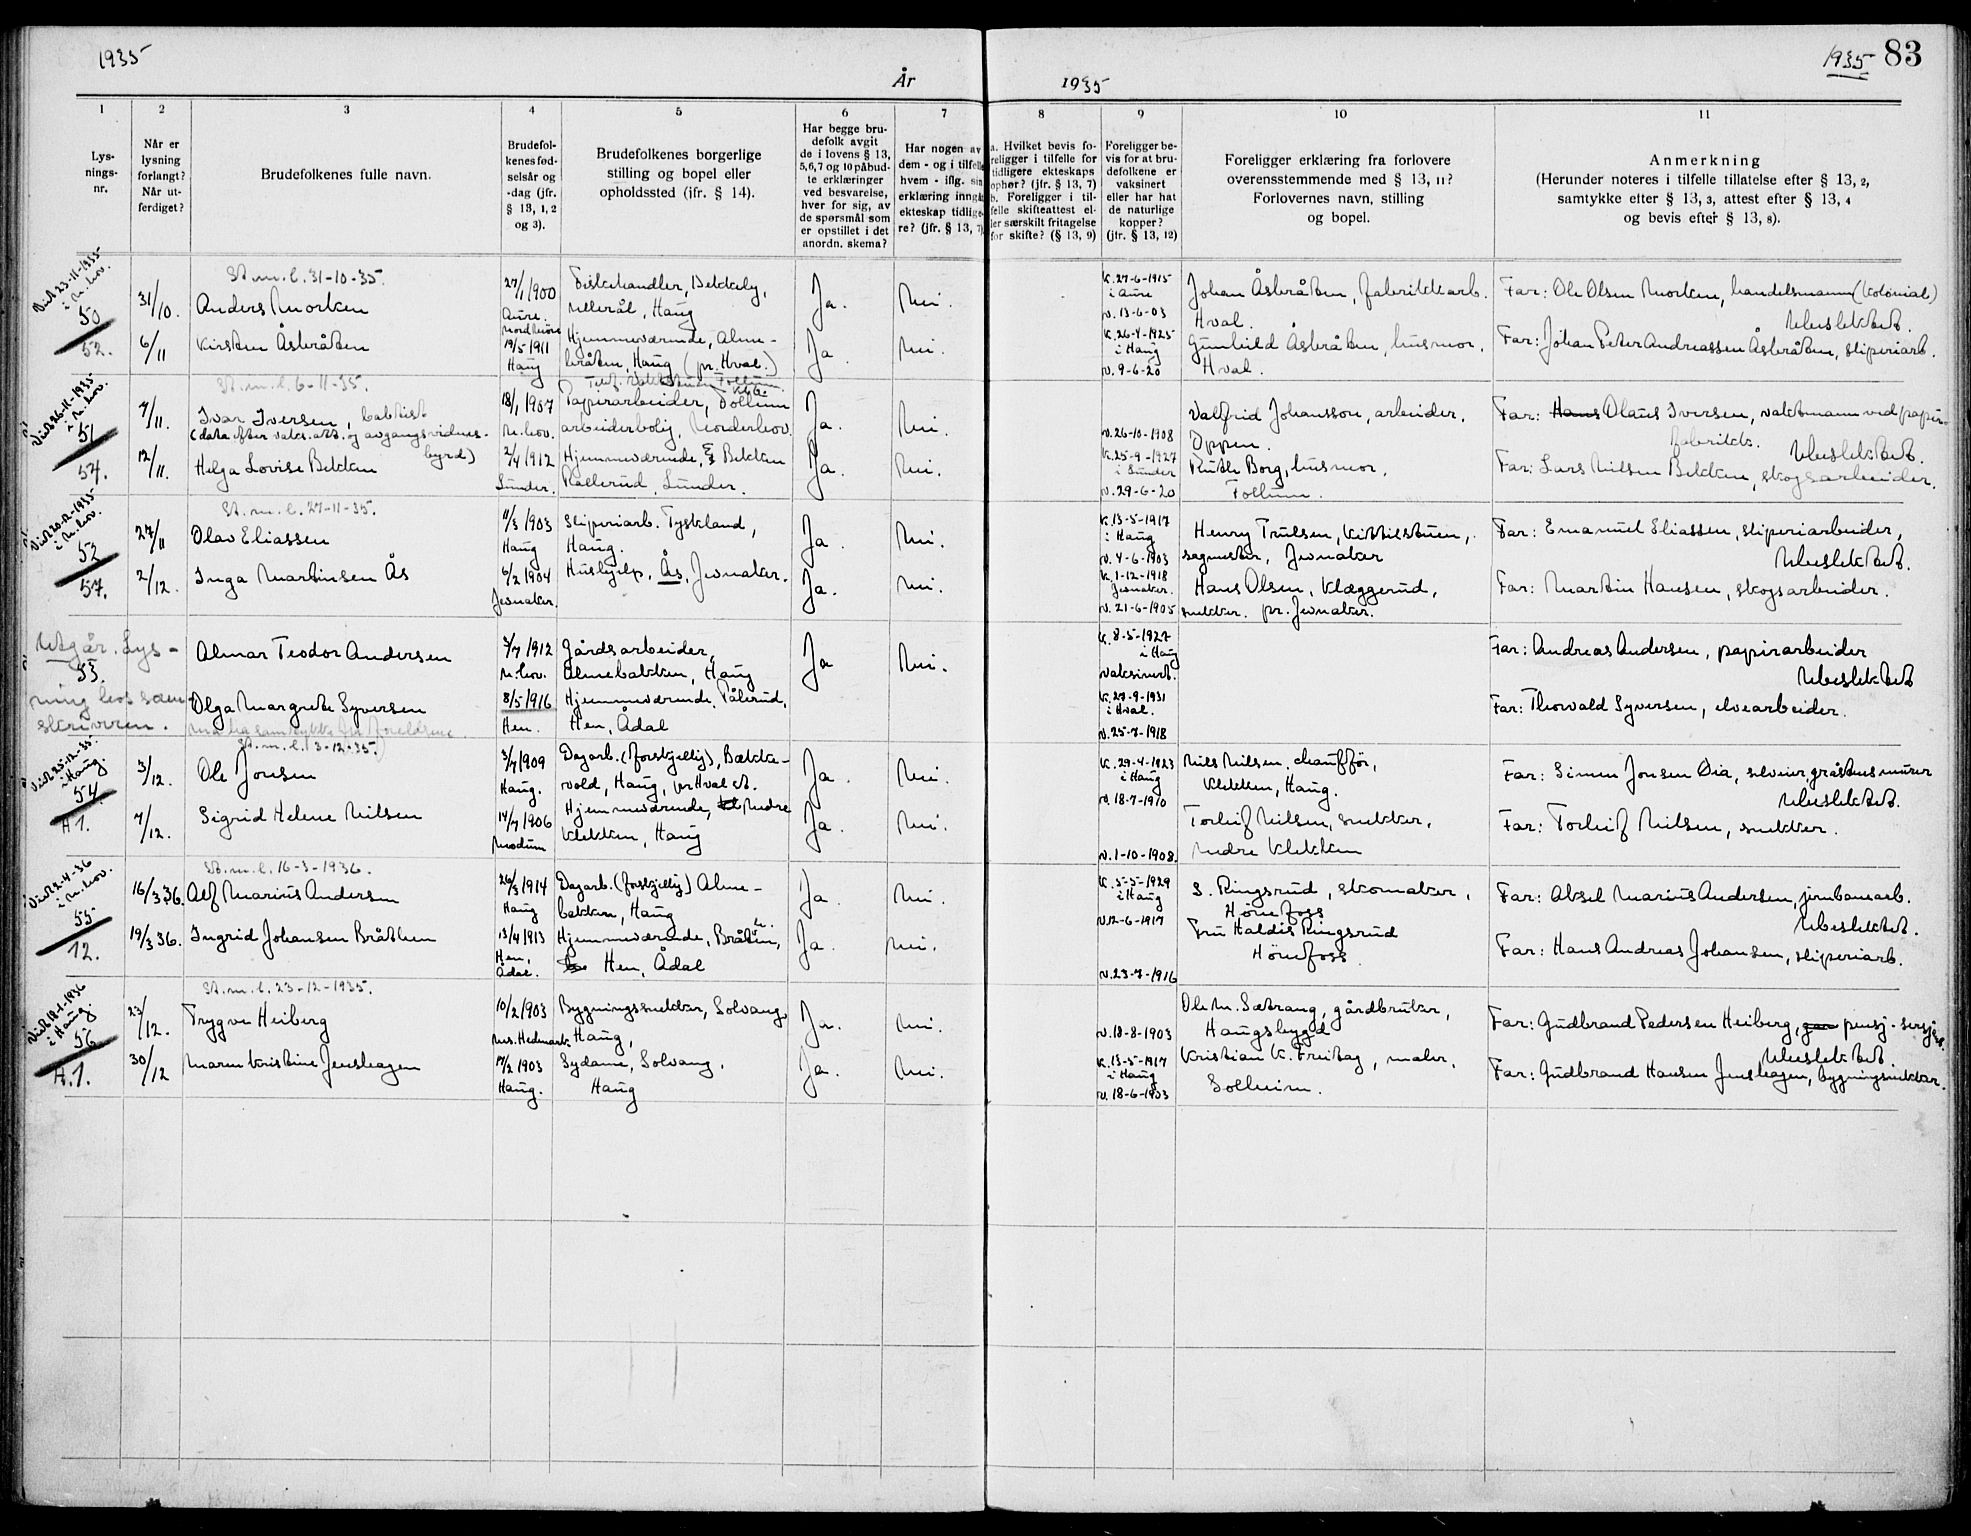 1935
År
1935
1935 83
1
2
3
4
5
6
7
8
9
10
11
Lys-
nings-
nr.
Når er
lysning
forlangt?
Når ut-
ferdiget?
Brudefolkenes fulle navn.
Brudefol-
kenes fød-
selsår og
-dag (jfr.
§ 13, 1, 2
og 3).
Brudefolkenes borgerlige
stilling og bopel eller
opholdssted (jfr. § 14).
Har begge bru-
defolk avgit
de i lovens § 13,
5, 6, 7 og 10 påbud-
te erklæringer
ved besvarelse,
hver for sig, av
de spørsmål som
er opstillet i det
anordn. skema?
Har nogen av
dem - og i tilfelle
hvem - iflg. sin
erklæring inngått
ekteskap tidlige-
re? (jfr. § 13, 7)
a. Hvilket bevis fo-
religger i tilfelle for
tidligere ekteskaps
ophør? (jfr. § 13, 7)
b. Foreligger i til-
felle skifteattest el-
ler særskilt fritagelse
for skifte? (§ 13, 9)
Foreligger be-
vis for at bru-
defolkene er
vaksinert
eller har hat
de naturlige
kopper?
(jfr. § 13, 12)
Foreligger erklæring fra forlovere
overensstemmende med § 13, 11?
Forlovernes navn, stilling
og bopel.
Anmerkning
(Herunder noteres i tilfelle tillatelse efter § 13, 2,
samtykke efter § 13, 3, attest efter § 13, 4
og bevis efter § 13, 8).
Viet 23-11-1935
i N.hov.
50
52.
31/10.
6/11
St.m.l. 31-10-35.
Anders Morken
Kirsten Åsbråten
27/1 1900
Aure.
Nordmøre
19/5 1911
Haug
Fiskehandler, Bekkely,
Nellerål, Haug
Hjemmeværende, Alme-
bråten, Haug (pr. Hval.)
Ja.
Ja.
Nei.
Nei.
K. 27-6-1915
i Aure
v. 13-6-03
K. 26-4-1925
i Haug
v. 9-6-20
Johan Åsbråten, fabrikkarb.
Hval.
Gunhild Åsbråten, husmor,
Hval.
Far: Ole Olsen Morken, handelsmann (Kolonial)
Ubeslektet.
Far: Johan Peter Andreassen Åsbråten, sliperiarb.
Viet 26-11-1935
i N.hov.
51
54.
7/11.
12/11.
St.m.l. 6-11-35.
Ivar Iversen, baptist
(data efter vaks.att. og avgangsvidnes-
byrd)
Helga Lovise Bekken
18/1 1907
N.hov.
2/4 1912
Lunder.
Papirarbeider, Follum
arbeiderbolig, Norderhov
Hjemmeværende, Bekken
Rallerud, Lunder.
Ja.
Ja.
Nei.
Nei.
v. 26-10-1908
K. 25-9-1927
i Lunder
v. 29-6-20
Valfrid Johansson, arbeider,
Oppen.
Ruth Borg, husmor,
Follum.
Far: Hans Olaus Iversen, vaktmann ved papir-
fabrikk.
Ubeslektet.
Far: Lars Nilsen Bekken, skogsarbeider.
Viet 20-12-1935
i N.hov.
52
57.
27/11
2/12.
St.m.l. 27-11-35.
Olav Eliassen
Inga Martinsen Ås
11/3 1903
Haug
6/2 1904
Jevnaker.
Sliperiarb. Tyskland,
Haug.
Hushjelp, Ås, Jevnaker.
Ja.
Ja.
Nei.
Nei.
K. 13-5-1917
i Haug
v. 4-6-1903
K. 1-12-1918
Jevnaker.
v. 21-6-1905
Henry Trulsen, Kittilstuen,
sagmester, Jevnaker
Hans Olsen, Klæggerud,
snekker. pr. Jevnaker.
Far: Emanuel Eliassen, sliperiarbeider,
Ubeslektet.
Far: Martin Hansen, skogsarbeider.
Utgår. Lys-
53.
ning hos soren-
skriveren.
Almar Teodor Andersen
Olga Margrete Syversen
må ha samtykke fra foreldrene.
7/7 1912
N.hov.
8/5 1916
Hen.
Gårdsarbeider,
Almebakken, Haug
Hjemmeværende, Pålerud,
Hen, Ådal
Ja
Nei.
K. 8-5-1927
i Haug
Vaksinert.
K. 27-9-1931
i Hval.
v. 25-7-1918
Far: Andreas Andersen, papirarbeider
Ubeslektet
Far: Thorvald Syversen, elvearbeider.
Viet 25-12-35.
i Haug.
54.
A 1.
3/12.
7/12.
St.m.l. (3-12-35.)
Ole Jonsen
Sigrid Helene Nilsen
3/7 1909
Haug.
14/7 1906
Modum
Dagarb. (forskjellig), Bække-
vold, Haug, pr Hval st.
Hjemmeværende, Nedre
Klekken, Haug
Ja.
Ja.
Nei.
Nei.
K. 29-4-1923
i Haug
v. 18-7-1910
v. 1-10-1908.
Nils Nilsen, chauffør,
Klekken, Haug.
Torleif Nilsen, snekker,
Nedre Klekken
Far: Simen Jonsen Øia, selveier, gråstensmurer
Ubeslektet.
Far: Torleif Nilsen, snekker.
Viet 2-4-36
i N.hov.
55
12.
16/3 36.
19/3 36.
St.m.l. 16-3-1936.
Alf Marius Andersen
Ingrid Johansen Bråthen
26/3 1914
Haug
13/4 1913
Hen,
Ådal.
Dagarb. (forskjellig) Alme-
bakken, Haug
Hjemmeværende, Bråten,
Hen, Ådal
Ja.
Ja.
Nei.
Nei.
K. 5-5-1929
i Haug
v. 12-6-1917
v. 23-7-1916
S. Ringsrud, skomaker,
Hønefoss
Fru Haldis Ringsrud
Hønefoss.
Far: Aksel Marius Andersen, jernbanearb.
Ubeslektet.
Far: Hans Andreas Johansen, sliperiarb.
Viet 18-1-1936
i Haug
56
A. 1.
23/12.
30/12
St.m.l. 23-12-1935.
Trygve Heiberg
Maren Kristine Jenshagen
10/2 1903
Nes. Hedmark.
17/2 1903
Haug.
Bygningssnekker, Solvang,
Haug,
Sydame, Solvang,
Haug
Ja.
Ja.
Nei.
Nei.
v. 18-8-1903
K. 13-5-1917
i Haug
v. 18-6-1903
Ole M. Sætrang, gårdbruker,
Haugsbygd
Kristian K. Freitag, maler,
Solheim.
Far: Gudbrand Pedersen Heiberg, pensj. sersjant.
Ubeslektet
Far: Gudbrand Hansen Jenshagen, bygningsnekker.